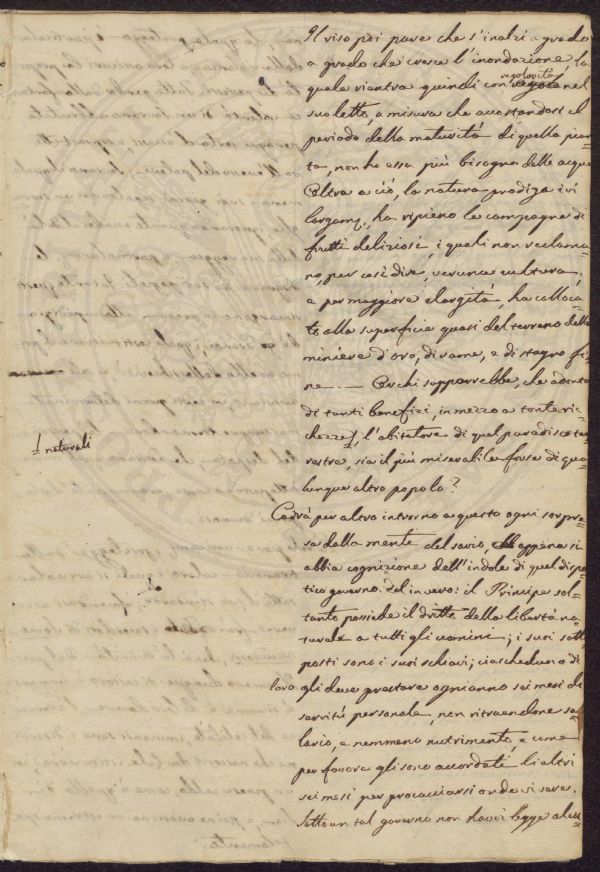 Il riso poi pare che s'inalzi a grado
a grado che cresce l'inondazione, la
quale rientra quindi con regolarità nel
suo letto, a misura che accostandosi il
periodo della maturità di quella pian=
ta, non ha essa più bisogno delle acque
Oltra a ciò, la natura prodiga ivi
largam., ha ripieno le campagne di
frutti deliziosi, i quali non reclama=
no, per così dire, veruna cultura,
e per maggiore elargità, ha colloca=
to alla superficie quasi del terreno delle
miniere d'oro, di rame, e di stagno fi=
ne. — Or chi supporrebbe, che adonta
di tanti benefizi, in mezzo a tante ric=
chezze, l'abitatore di quel paradiso ter
restre, sia il più miserabile forse di qua
lunque altro popolo?
naturali
Cadrà per altro intorno a questo ogni sorpre=
sa dalla mente del savio, appena si
abbia cognizione dell'indole di quel dispo=
tico governo. Ed in vero: il Principe sol=
tanto possiede il dritto della libertà na=
turale a tutti gli uomini; i suoi sott=
posti sono i suoi schiavi; ciascheduno di
loro gli deve prestare ogni anno sei mesi di
servitù personale, non ritraendone sa=
lario, e nemmeno nutrimento, e come
per favore gli sono accordati li altri
sei mesi per procacciarsi onde vivere.
Sotto un tal governo non havvi legge alcu=